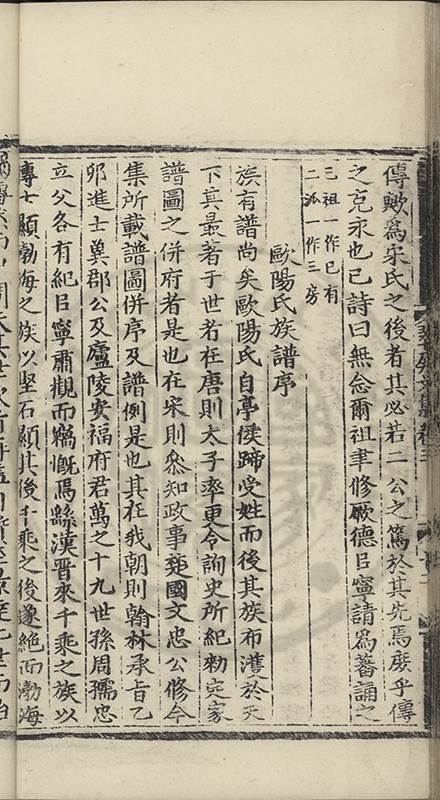 傳歟爲宋氏之後者其必若二公之篤於其先焉庶乎傳
之克永也已詩曰無念爾祖聿修厥德臣寧請爲蕃誦之
三祖一作已有
二派一作三房
歐陽氏族譜序
族有譜尚矣歐陽氏自亭侯蹄受姓而後其族布濩於天
下其最著于世者在唐則太子率更令詢史所紀勑定家
譜圖之併府者是也在宋則叅知政事兖國文忠公修今
集所載譜圖併序及譜例是也其在我朝則翰林承旨乙
夘進士冀郡公及廬陵安福府君萬之十九世孫周孺忠
立父各有紀臣寧肅觀而竊慨焉繇漢晋來千乘之族以
博士顯渤海之族以堅石顯其後千乘之後遂絶而渤海